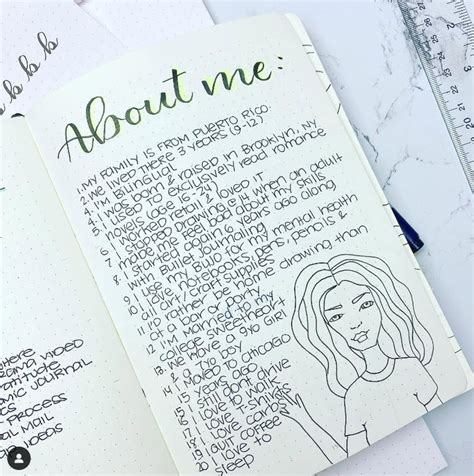 About me:
1. MY FAMILY IS FROM PUERTO RICO.
2 WE LIVED THERE 3 YEARS (9-12)
I'M BILINGUAL
4 I was born & raised in Brooklyn, NY.
5 I used to exclusively read romance
novels (age 15-24)
6 I worked retail & loved it
7 I stopped drawing @ 14 when an adult
made me feel bad about my skills
8 I started again 6 years ago along
with Bullet Journaling
9 I use my BuJo for my mental health
10 I love notebooks, pens, pencils &
all art/craft supplies
11 I'd rather be home drawing than
at a bar or party
12 I'm married to my
college sweetheart
13 We have a 9yo girl
& a yo boy
14 I moved to CHICAGO
years ago
15 I still don't drive
16 I love to walk
17 I love T-shirts
18 I love carbs
19 I quit coffee
20 I love to
sleep
VIDEO
JOURNAL
PROCESS
MAIL